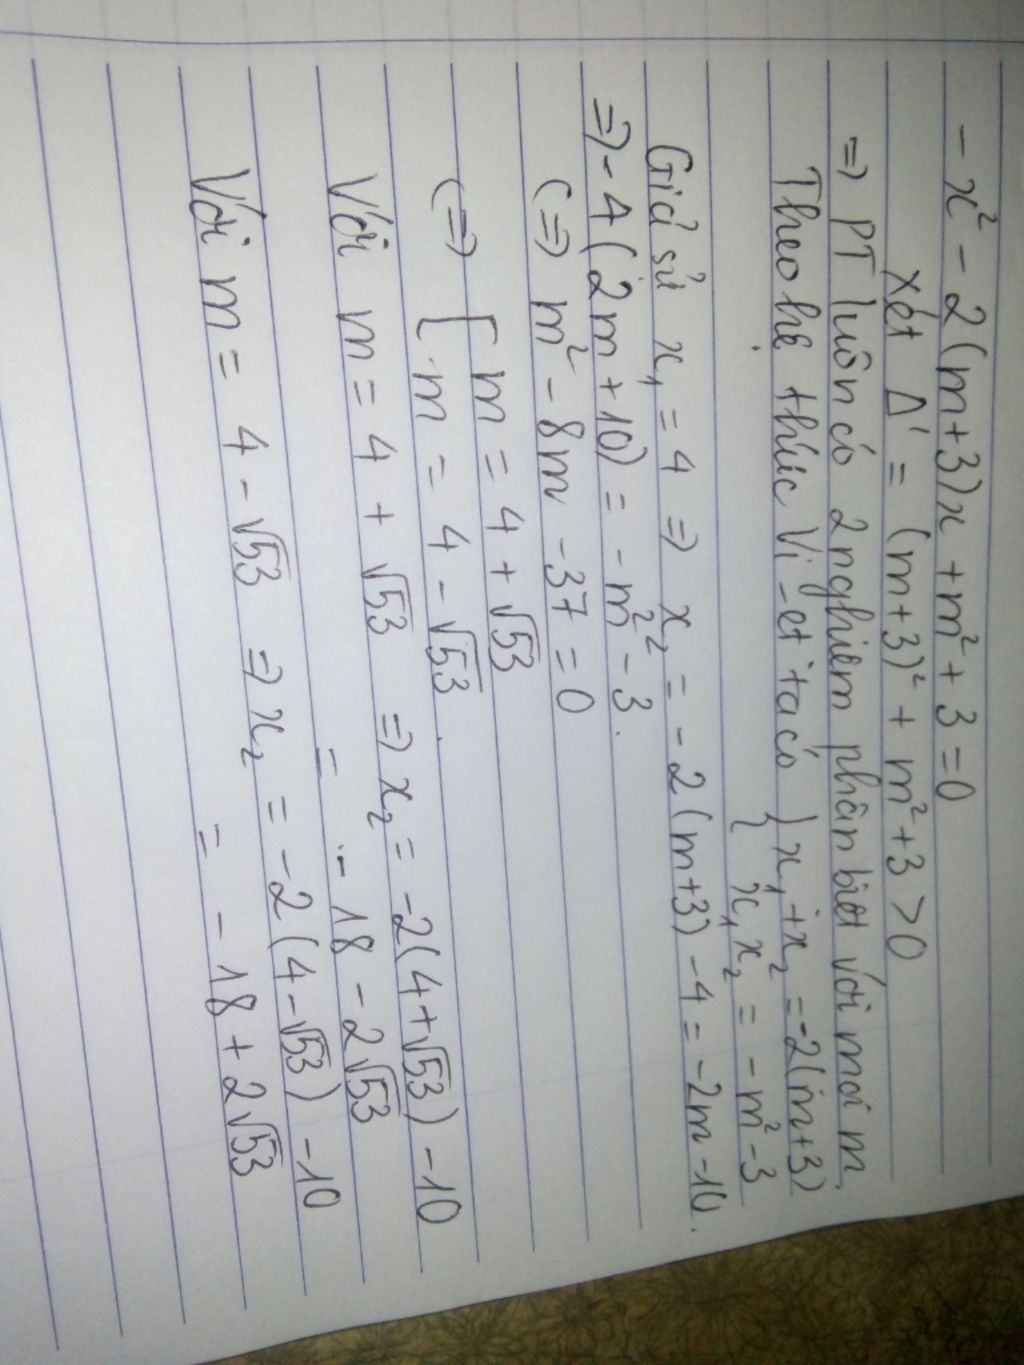 - x² - 2(m+3)x + m² + 3 = 0
Xét Δ' = (m+3)² + m² + 3 > 0
=> PT luôn có 2 nghiệm phân biệt với mọi m.
Theo hệ thức Vi-et ta có { x₁ + x₂ = -2(m+3)
{ x₁x₂ = - m² - 3
Giả sử x₁ = 4 => x₂ = - 2(m+3) - 4 = -2m - 10.
=> - 4(2m+10) = - m² - 3.
<=> m² - 8m - 37 = 0
<=> [ m = 4 + √53
[ m = 4 - √53.
Với m = 4 + √53 => x₂ = -2(4+√53) - 10
= - 18 - 2√53
Với m = 4 - √53 => x₂ = -2(4-√53) - 10
= - 18 + 2√53